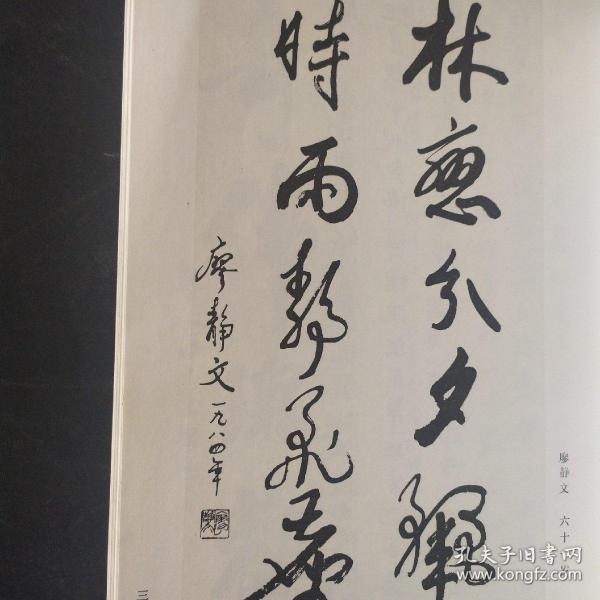 林
分夕
時雨靜飛塵
廖靜文一九八四年
廖静文 六十
三
孔夫子旧书网
www.kongfz.com